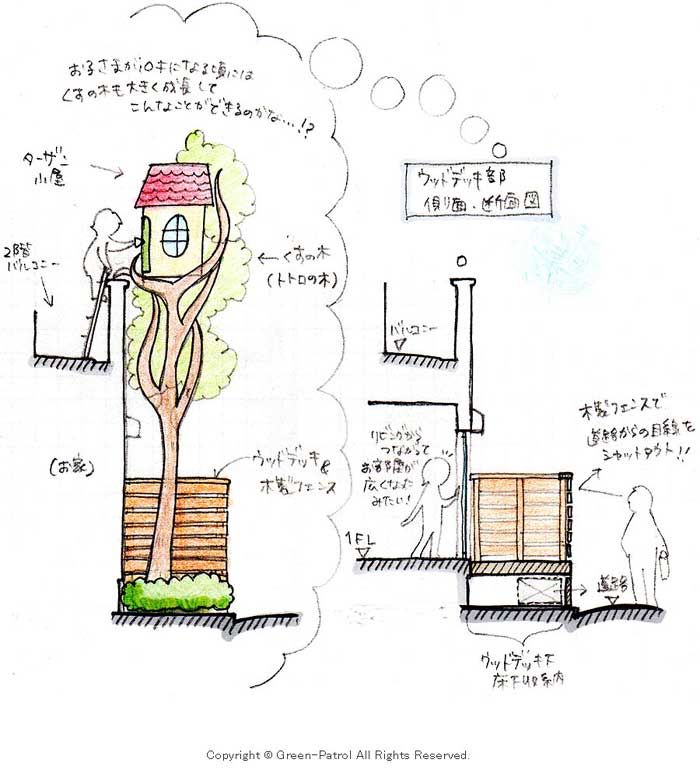 お子さまが10才になる頃には
くすの木も大きく成長して
こんなことができるのかな…!?
ターザン
小屋
2階
バルコニー
くすの木
(トトロの木)
(お家)
ウッドデッキ&
木製フェンス
ウッドデッキ部
側面・断面図
バルコニー
リビングから
つながって
お部屋が
広くなった
みたい!
木製フェンスで
道路からの目線を
シャットアウト!!
1FL
道路
ウッドデッキ下
床下収納
Copyright © Green-Patrol All Rights Reserved.